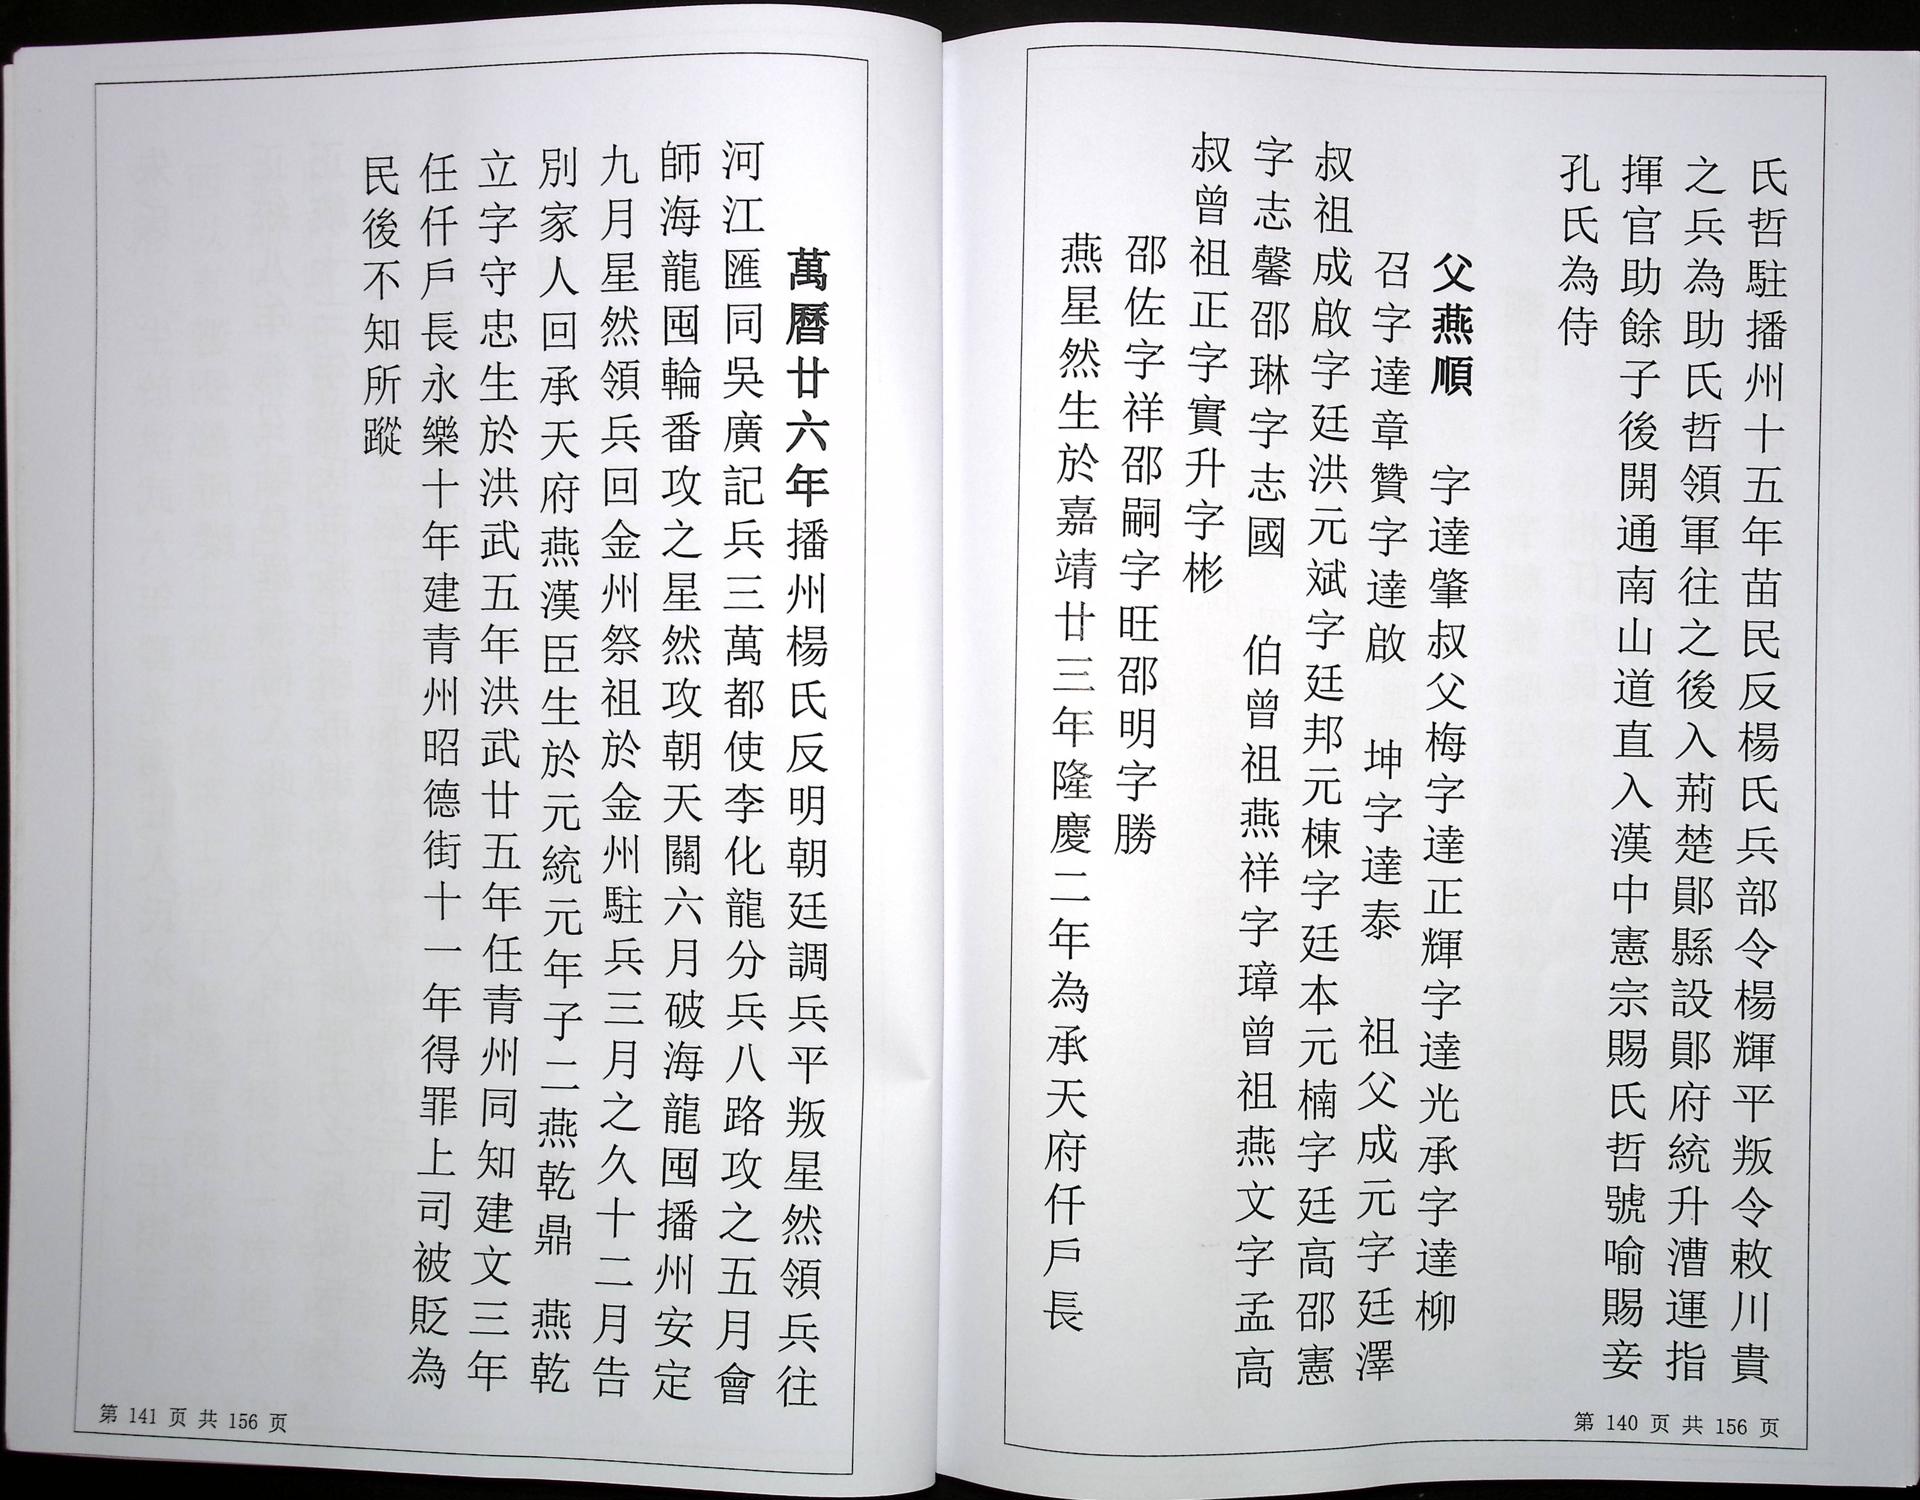 氏哲駐播州十五年苗民反楊氏兵部令楊輝平叛令敕川貴
之兵為助氏哲領軍往之後入荊楚鄖縣設鄖府統升漕運指
揮官助餘子後開通南山道直入漢中憲宗賜氏哲號喻賜妾
孔氏為侍
父燕順　字達肇叔父梅字達正輝字達光承字達柳
召字達章贊字達啟　坤字達泰　祖父成元字廷澤
叔祖成啟字廷洪元斌字廷邦元棟字廷本元楠字廷高邵憲
字志馨邵琳字志國　伯曾祖燕祥字璋曾祖燕文字孟高
叔曾祖正字實升字彬
邵佐字祥邵嗣字旺邵明字勝
燕星然生於嘉靖廿三年隆慶二年為承天府仟戶長
第 140 页 共 156 页
萬曆廿六年播州楊氏反明朝廷調兵平叛星然領兵往
河江匯同吳廣記兵三萬都使李化龍分兵八路攻之五月會
師海龍囤輪番攻之星然攻朝天關六月破海龍囤播州安定
九月星然領兵回金州祭祖於金州駐兵三月之久十二月告
別家人回承天府燕漢臣生於元統元年子二燕乾鼎　燕乾
立字守忠生於洪武五年洪武廿五年任青州同知建文三年
任仟戶長永樂十年建青州昭德街十一年得罪上司被貶為
民後不知所蹤
第 141 页 共 156 页